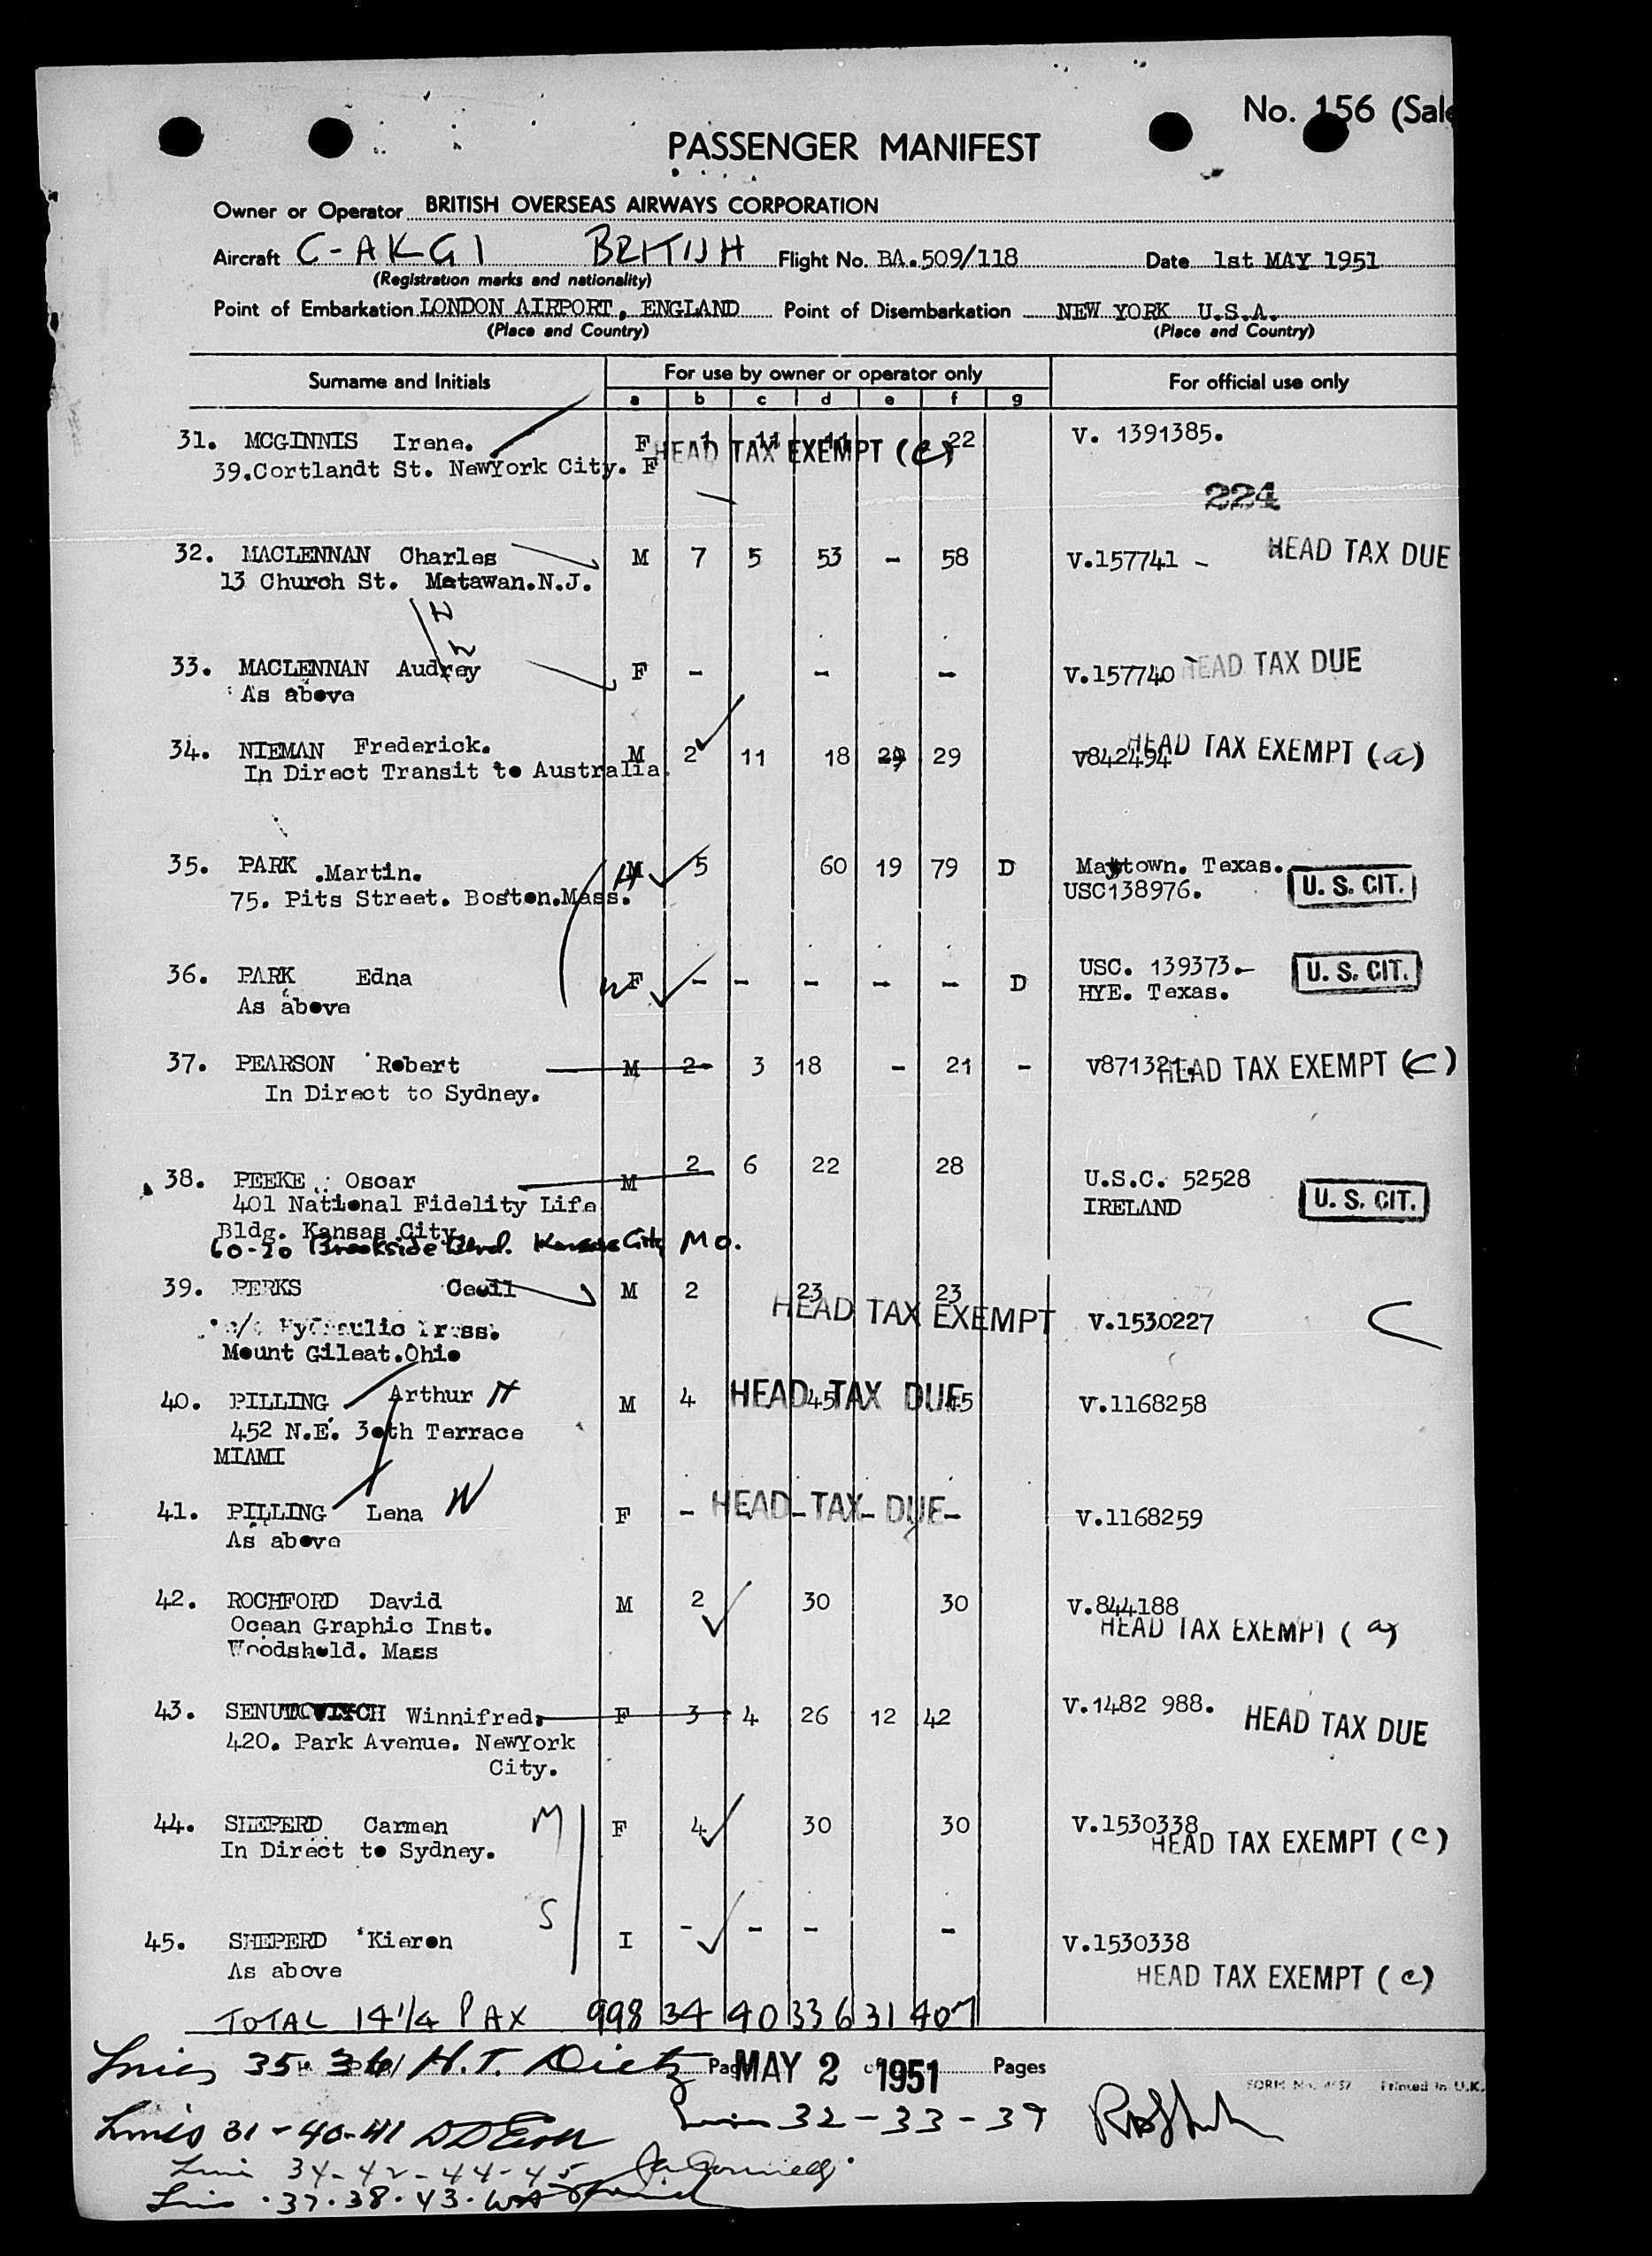 No. 156 (Sale
PASSENGER MANIFEST
Owner or Operator BRITISH OVERSEAS AIRWAYS CORPORATION
Aircraft G-AKGI BRITISH Flight No. BA.509/118 Date 1st MAY 1951
(Registration marks and nationality)
Point of Embarkation LONDON AIRPORT, ENGLAND Point of Disembarkation NEW YORK U.S.A.
(Place and Country) (Place and Country)
Surname and Initials For use by owner or operator only For official use only
a b c d e f g
31. MCGINNIS Irene. F 1 11 11 22 V. 1391385.
HEAD TAX EXEMPT (c)
39.Cortlandt St. NewYork City. F
224
32. MACLENNAN Charles M 7 5 53 - 58 V.157741 - HEAD TAX DUE
13 Church St. Matawan.N.J.
H
W
33. MACLENNAN Audrey F - - - V.157740 HEAD TAX DUE
As above
34. NIEMAN Frederick. M 2 11 18 29 29 V842494 HEAD TAX EXEMPT (a)
In Direct Transit to Australia.
35. PARK .Martin. M 5 60 19 79 D Maytown. Texas.
75. Pits Street. Boston.Mass. H USC138976. U. S. CIT.
36. PARK Edna W F - - - - - D USC. 139373.- U. S. CIT.
As above HYE. Texas.
37. PEARSON Robert M 2 3 18 - 21 - V871321. HEAD TAX EXEMPT (C)
In Direct to Sydney.
38. PEEKE Oscar M 2 6 22 28 U.S.C. 52528
401 National Fidelity Life IRELAND U. S. CIT.
Bldg. Kansas City.
60-20 Brookside Blvd. Kansas City Mo.
39. PERKS Cecil M 2 23 23
HEAD TAX EXEMPT V.1530227 C
c/o Hydraulic Press.
Mount Gileat.Ohio
40. PILLING Arthur H M 4 45 45 V.1168258
HEAD TAX DUE
452 N.E. 30th Terrace
MIAMI
41. PILLING Lena W F - - - - V.1168259
HEAD TAX DUE
As above
42. ROCHFORD David M 2 30 30 V.844188
Ocean Graphic Inst. HEAD TAX EXEMPT (a)
Woodshold. Mass
43. Winnifred. F 3 4 26 12 42 V.1482 988. HEAD TAX DUE
420. Park Avenue. NewYork
City.
44. SHEPERD Carmen M F 4 30 30 V.1530338
In Direct to Sydney. HEAD TAX EXEMPT (C)
S
45. SHEPERD Kieron I - - - - V.1530338
As above HEAD TAX EXEMPT (c)
TOTAL 14 1/4 PAX 998 34 40 336 31 407
Lines 35 36 H.T. Dietz Page MAY 2 1951 Pages
FORM No. Printed in U.K.
Lines 31-40-41 Lines 32-33-39
Line 34-42-44-45
Lines 37.38.43.